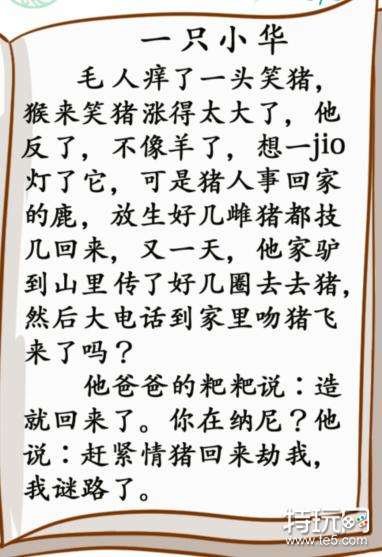 一只小华
毛人痒了一头笑猪，
猴来笑猪涨得太大了，他
反了，不像羊了，想一jio
灯了它，可是猪人事回家
的鹿，放生好几雌猪都技
几回来，又一天，他家驴
到山里传了好几圈去去猪，
然后大电话到家里吻猪飞
来了吗？
他爸爸的粑粑说：造
就回来了。你在纳尼？他
说：赶紧情猪回来劫我，
我谜路了。
特玩网
www.te5.com